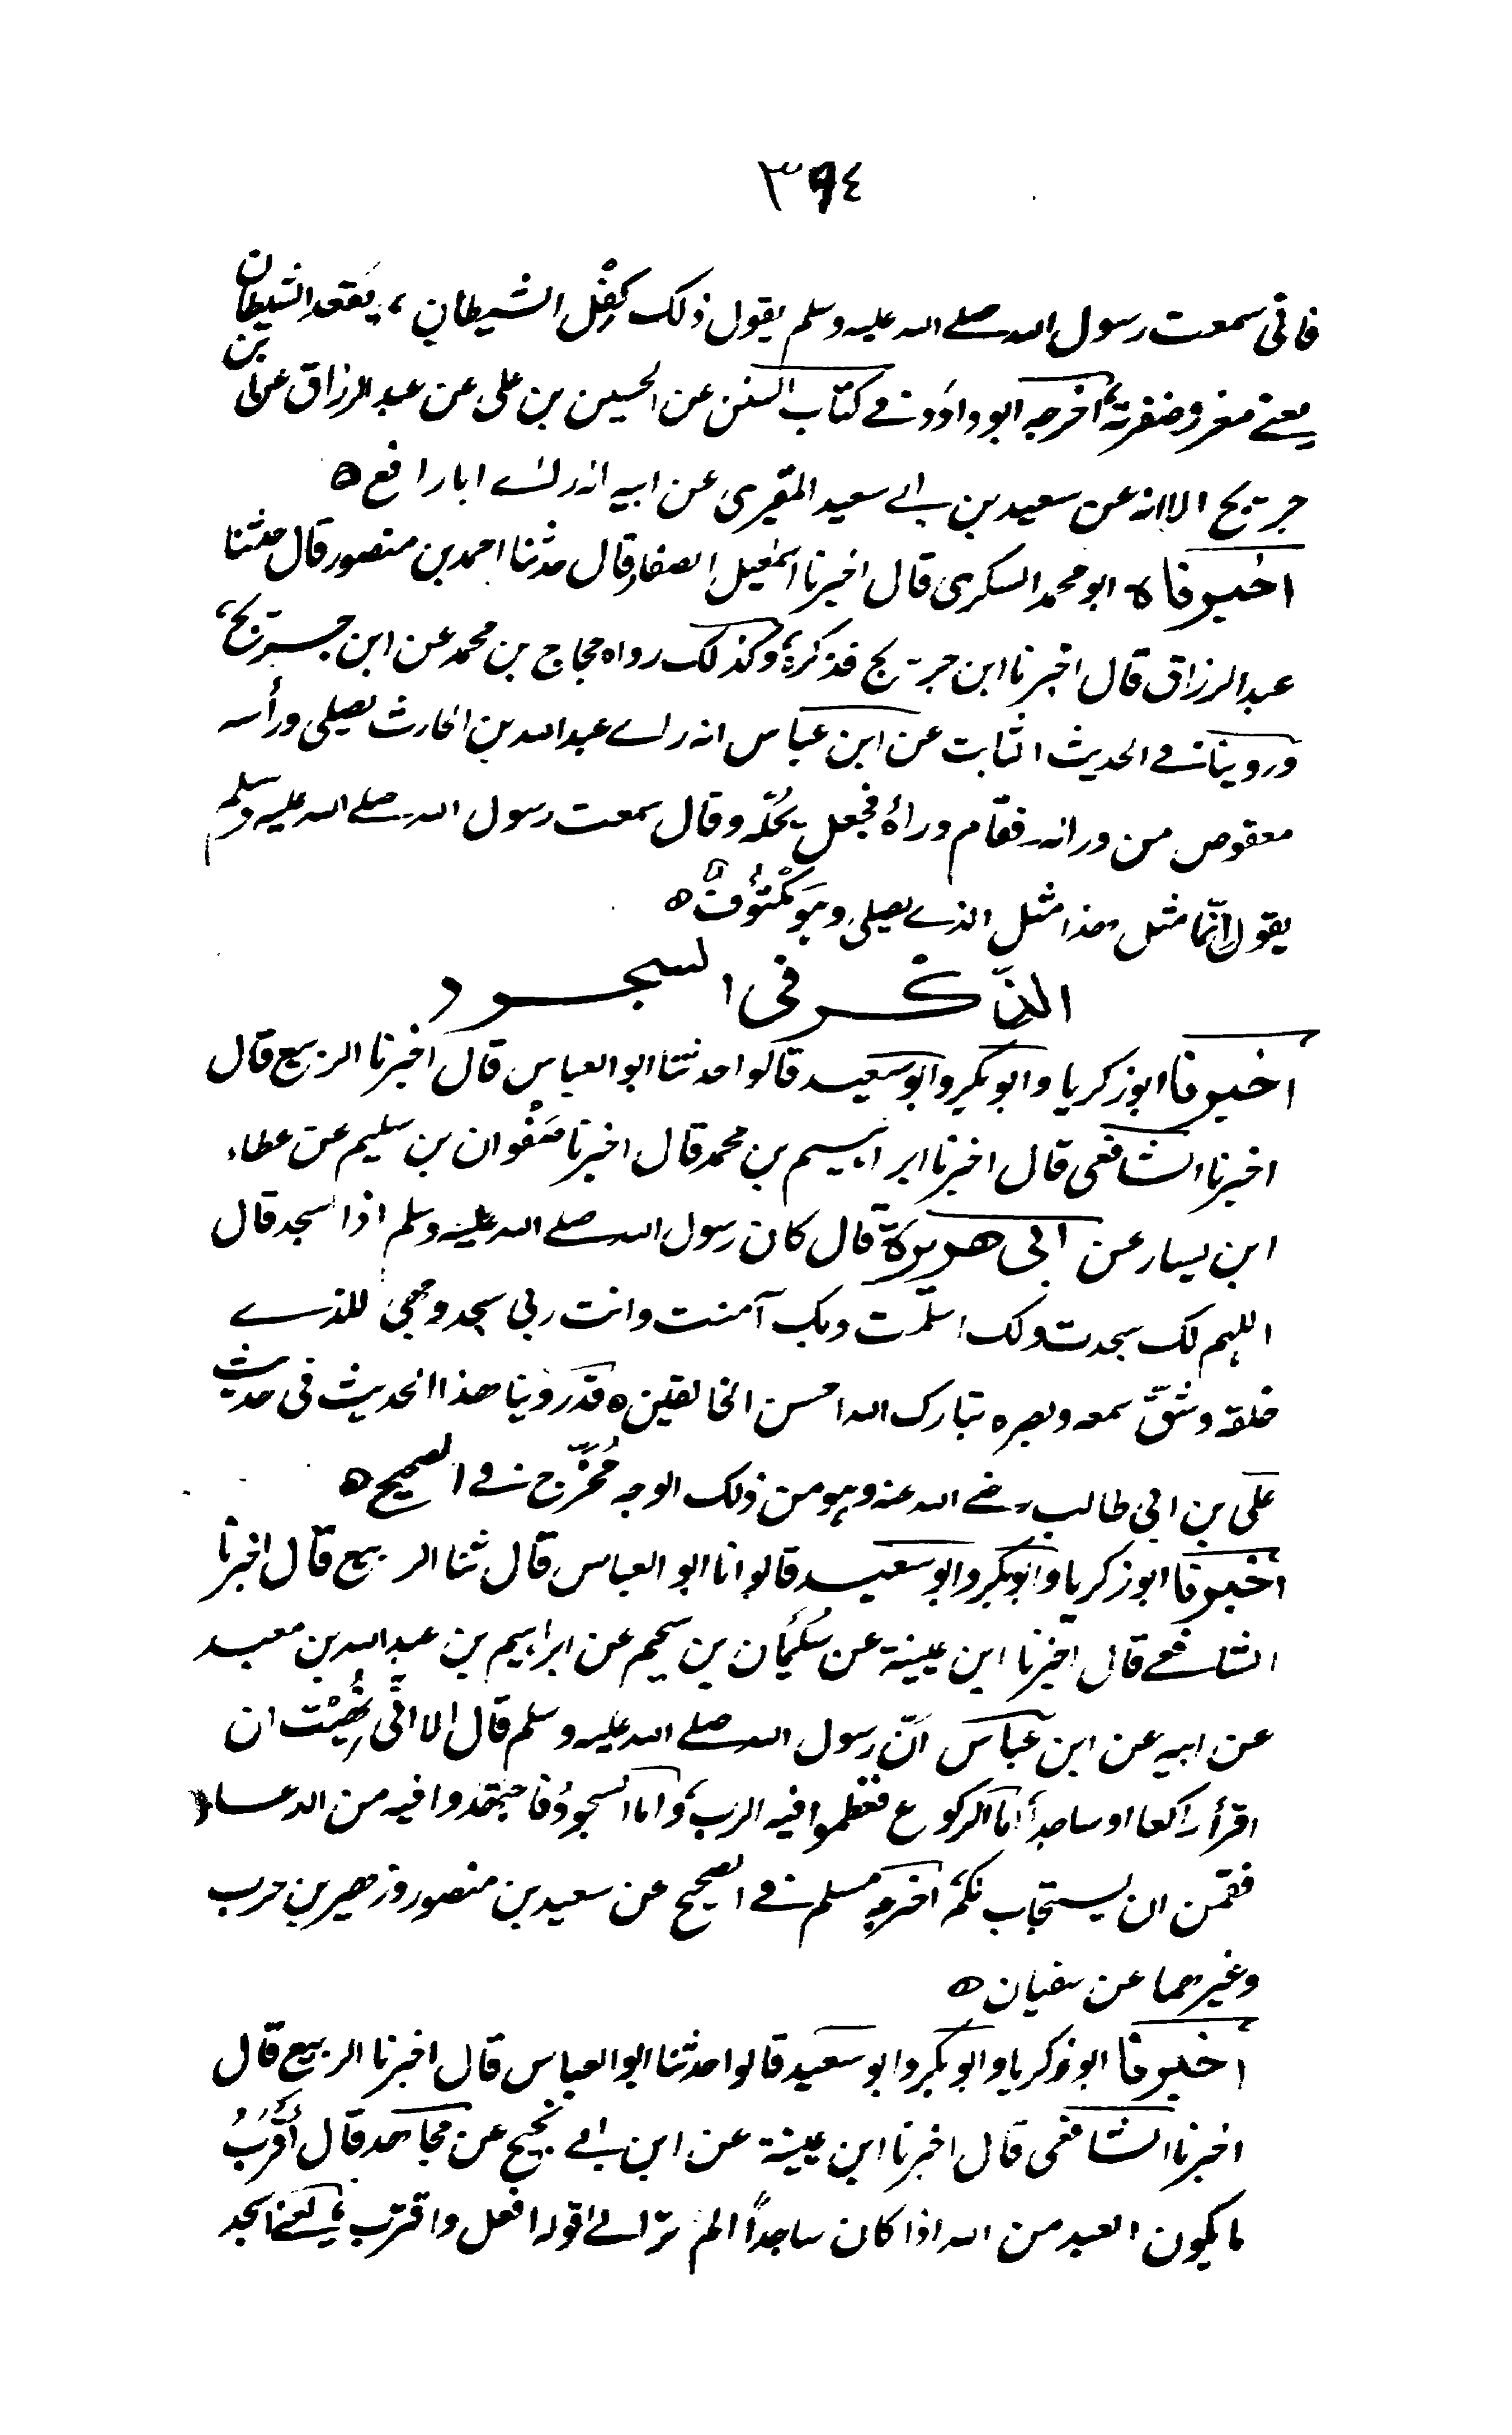 ٣٩٤
فانى سمعت رسول الله صلے الله عليه وسلم يقول ذلك كِفْل الشيطان، يَقعد الشيطان
يعنے مغرز ضفرته، اخرجه ابو داوَد فے كتاب السنن عن الحسين بن على عن عبد الرزاق عن ابن
جريج الا انه عن سعيد بن ابے سعيد المقبرى عن ابيه انه رائے ابا رافع ه
اخبرناه ابو محمد السكرى قال اخبرنا اسمٰعيل الصفار قال حدثنا احمد بن منصور قال حدثنا
عبد الرزاق قال اخبرنا ابن جريج فذكره، وكذلك رواه حجاج بن محمد عن ابن جريج،
وروينا فے الحديث الثابت عن ابن عباس انه راے عبد الله بن الحارث يصلى ورأسه
معقوص من ورائه فقام وراءه فجعل يحُلّه وقال سمعت رسول الله صلے الله عليه وسلم
يقول انّما مثل هذا مثل الذے يصلى وهَو مَكْتُوُفٌ ه
الذّكر فى السجود
اخبرنا ابو زكريا وابو بكر وابو سعيد قالوا حدثنا ابو العباس قال اخبرنا الربيع قال
اخبرنا الشافعى قال اخبرنا ابراهيم بن محمد قال اخبرنا صَفْوان بن سليم عن عطاء
ابن يسار عن ابى هريرة قال كان رسول الله صلے الله عليه وسلم اذا سجد قال
اللهم لك سجدت ولك اسلمت وبك آمنت وانت ربى سجد وجهى للذے
خلقه وشقّ سمعه وبصره تبارك الله احسن الخالقين ه قدَروينا هذا الحديث فى حديث
على بن ابى طالب رضے الله عنه وهو من ذلك الوجه مُخرّج فے الصحيح ه
اخبرنا ابو زكريا وابو بكر وابو سعيد قالوا انا ابو العباس قال ثنا الربيع قال اخبرنا
الشافعے قال اخبرنا ابن عيينة عن سُليَمان بن سحيم عن ابراهيم بن عبد الله بن معبد
عن ابيه عن ابن عباس اَنّ رسول الله صلے الله عليه وسلم قال الا انّى نُهِيْت ان
اقرأ راكعا او ساجداً اما الركوع فعظموا فيه الرب، واما السجودُ فاجتهدوا فيه من الدعاء
فقمن ان يستجاب لكم، اخرجه مسلم فے الصحيح عن سعيد بن منصور وزهير بن حرب
وغيرهما عن سفيان ه
اخبرنا ابو زكريا وابو بكر وابو سعيد قالوا حدثنا ابو العباس قال اخبرنا الربيع قال
اخبرنا الشافعى قال اخبرنا ابن عيينة عن ابن ابے نجيح عن مجاهد قال اَقْرَبُ
ما يكون العبد من الله اذا كان ساجداً الم تر الے قوله افعل واقترب، يعنے اسجد